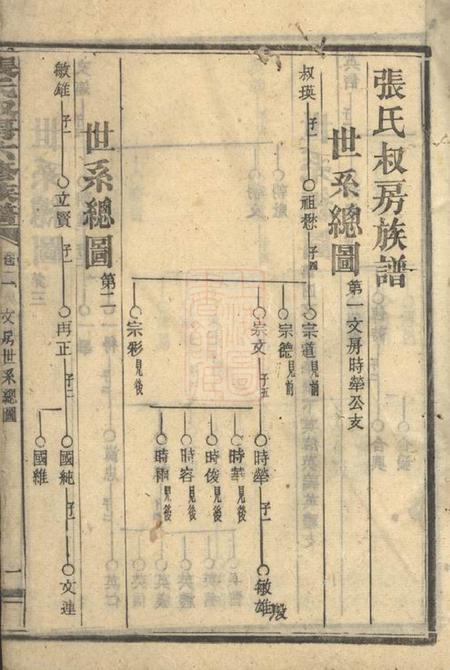 張氏叔房族譜
世系總圖 第一文房時華公支
叔瑛 子一
祖愁 子四
宗道 見前
宗德 見前
宗文 子五
宗彩 見後
時華 子一
時華 見後
時俊 見後
時容 見後
時雨 見後
敏雄
世系總圖 第二
敏雄 子一
立賢 子一
再正 子二
國純 子一
國維
文連
卷二 文房世系總圖
一